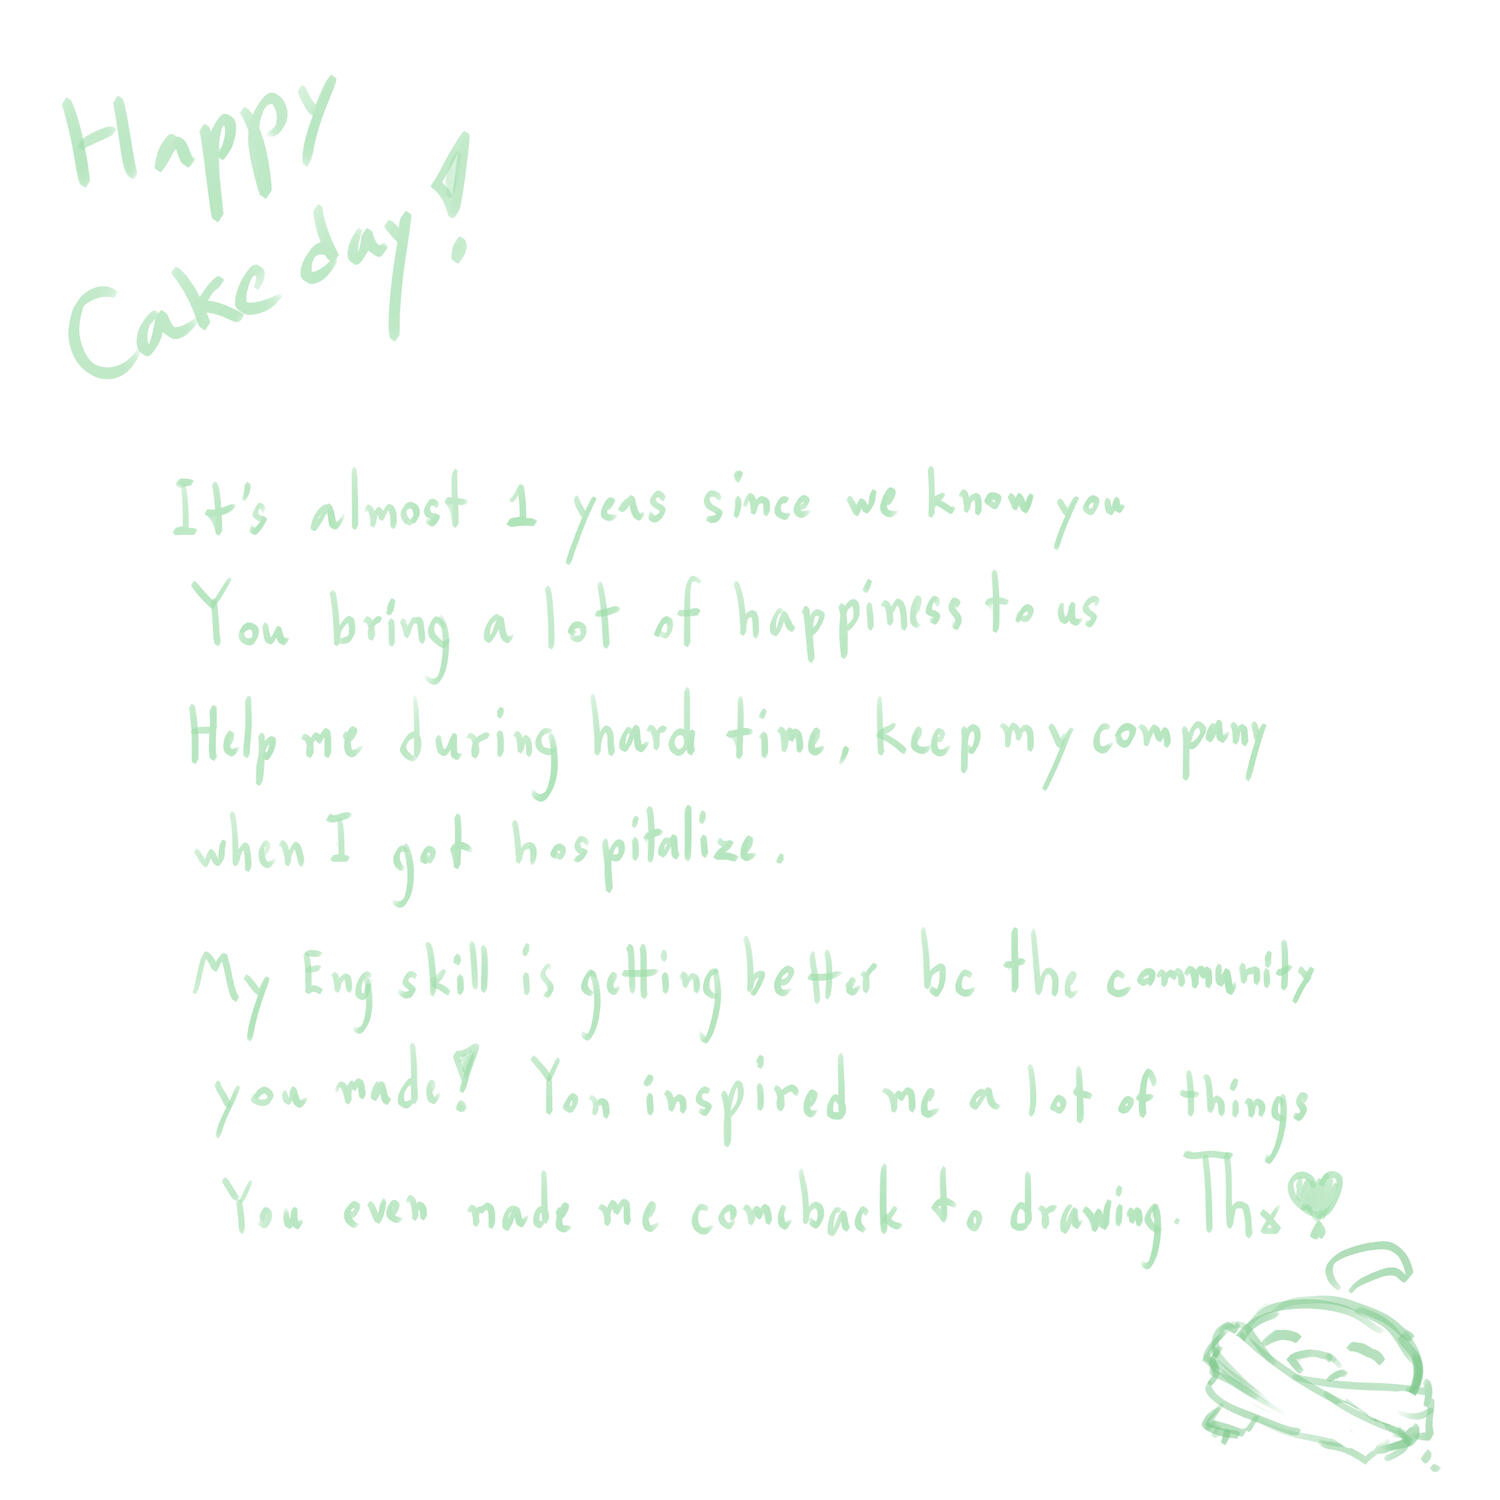 Happy
Cake day!
It's almost 1 yeas since we know you
You bring a lot of happiness to us
Help me during hard time, keep my company
when I got hospitalize.
My Eng skill is getting better bc the community
you made! You inspired me a lot of things
You even made me comeback to drawing. Thx